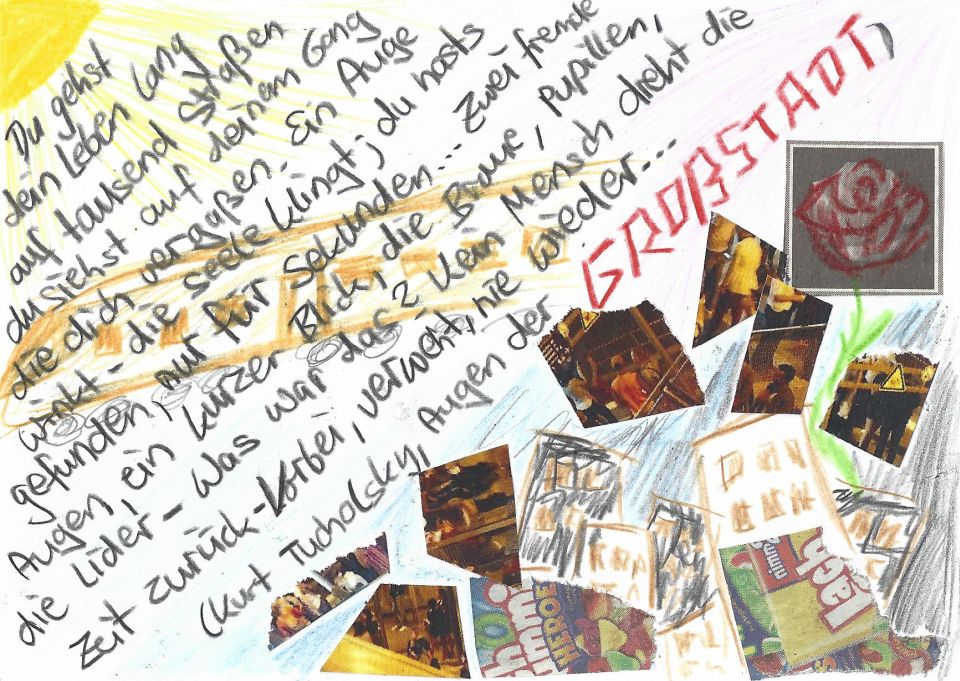 Du gehst
dein Leben lang
auf tausend Staßen
du siehst auf deinem Gang
die dich vergaßen. Ein Auge
winkt - die seele klingt; du hasts
gefunden, nur für Sekunden... Zwei fremde
Augen, ein kurzer Blick, die Braue, Pupillen,
die Lider - Was war das? Kein Mensch dreht die
Zeit zurück - Vorbei, verweht, nie wieder...
(Kurt Tucholsky, Augen der GROßSTADT)
nimm
Lach
nimm
HEROE